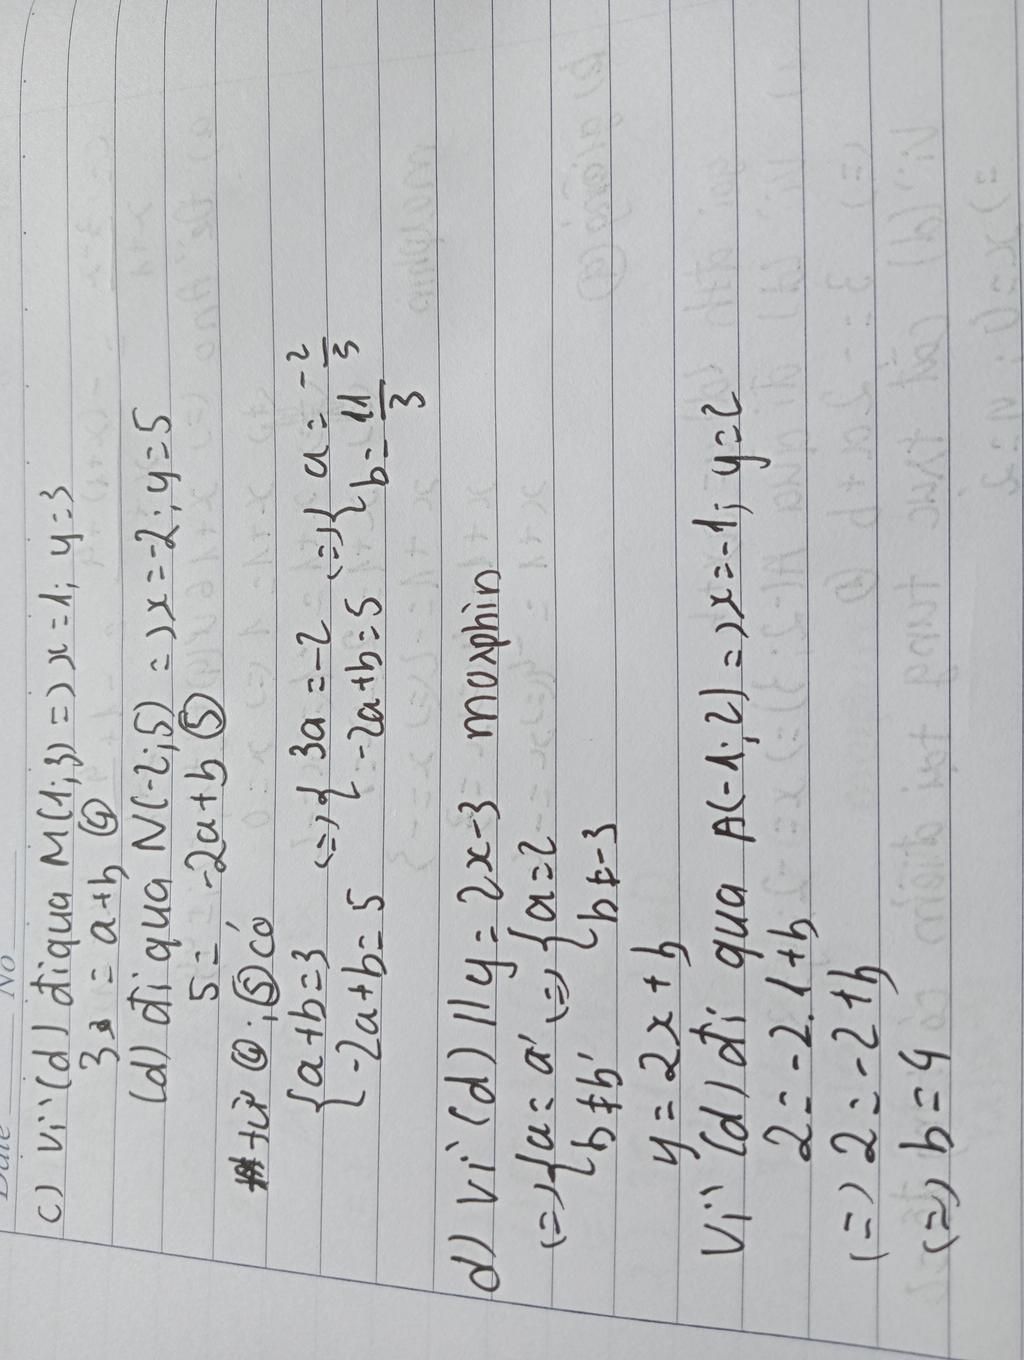 Date No
c) Vì (d) đi qua M(1;3) => x = 1; y=3
3 = a+b ④
(d) đi qua N(-2;5) => x=-2; y=5
5 = -2a+b ⑤
từ ④; ⑤ có
{a+b=3 <=> {3a=-2 <=> {a = -2/3
{-2a+b=5 {-2a+b=5 {b = 11/3
d) Vì (d) // y = 2x-3 morphin
<=> {a=a' <=> {a=2
{b≠b' {b≠-3
y = 2x + b
Vì (d) đi qua A(-1;2) => x=-1; y=2
2 = -2.1+b
<=> 2 = -2+b
<=> b=4